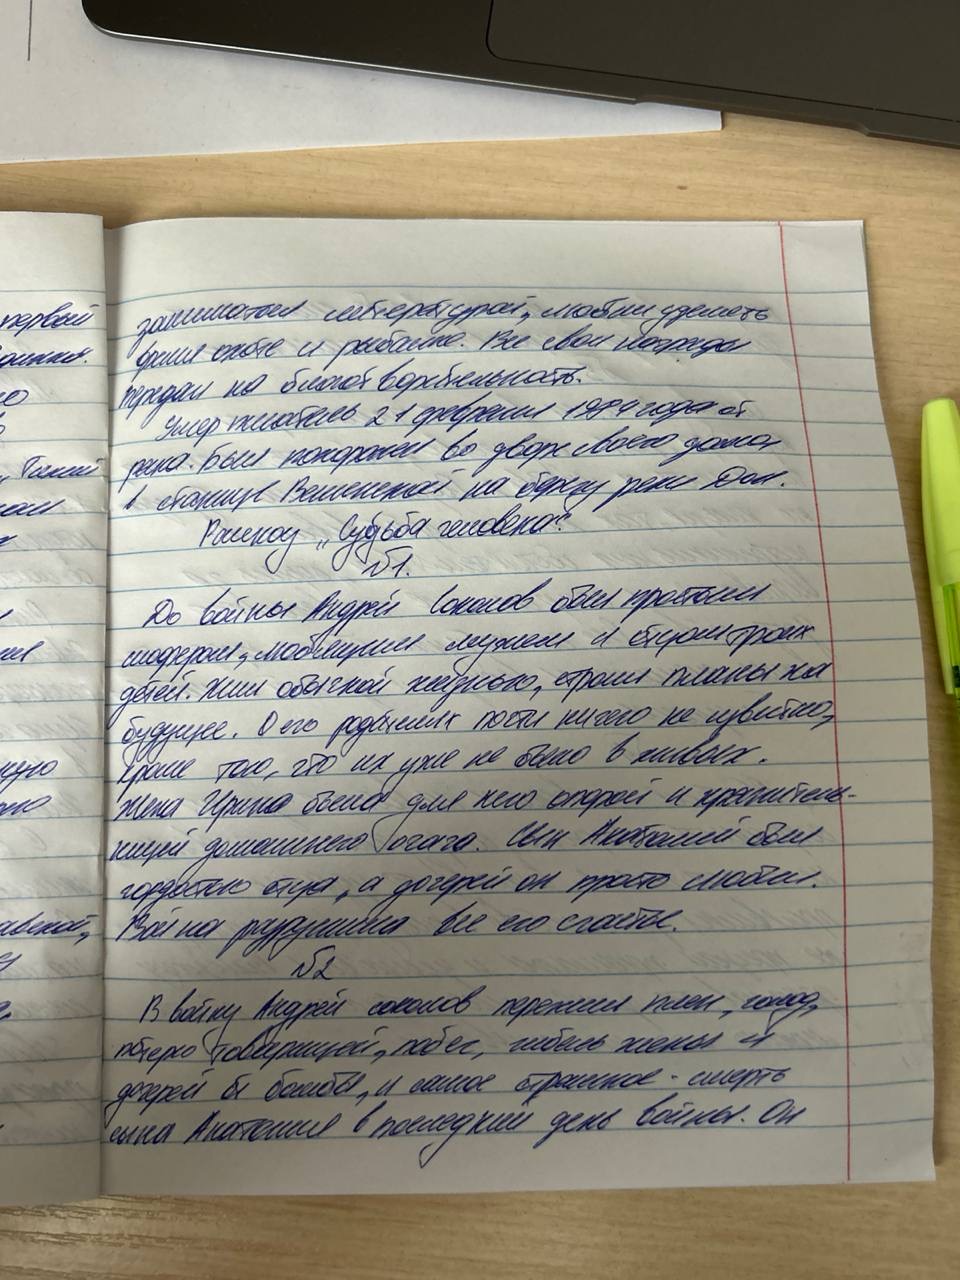 первой
заниматся литературой, любил уделять
время охоте и рыбалке. Все свои награды
передал на благотворительность.
Умер писатель 21 февраля 1984 года от
рака. Был похоронен во дворе своего дома
в станице Вешенской на берегу реки Дон.
Рассказ „Судьба человека".
№1.
До войны Андрей Соколов был простым
шофером, любящим мужем и отцом троих
детей. Жил обычной жизнью, строил планы на
будущее. О его родителях почти ничего не известно,
кроме того, что их уже не было в живых.
Жена Ирина была для него опорой и хранитель-
ницей домашнего очага. Сын Анатолий был
гордостью отца, а дочерей он просто любил.
Война разрушила все его счастье.
№2
В войну Андрей соколов пережил плен, голод,
потерю товарищей, побег, гибель жены и
дочерей от бомбы, и самое страшное - смерть
сына Анатолия в последний день войны. Он